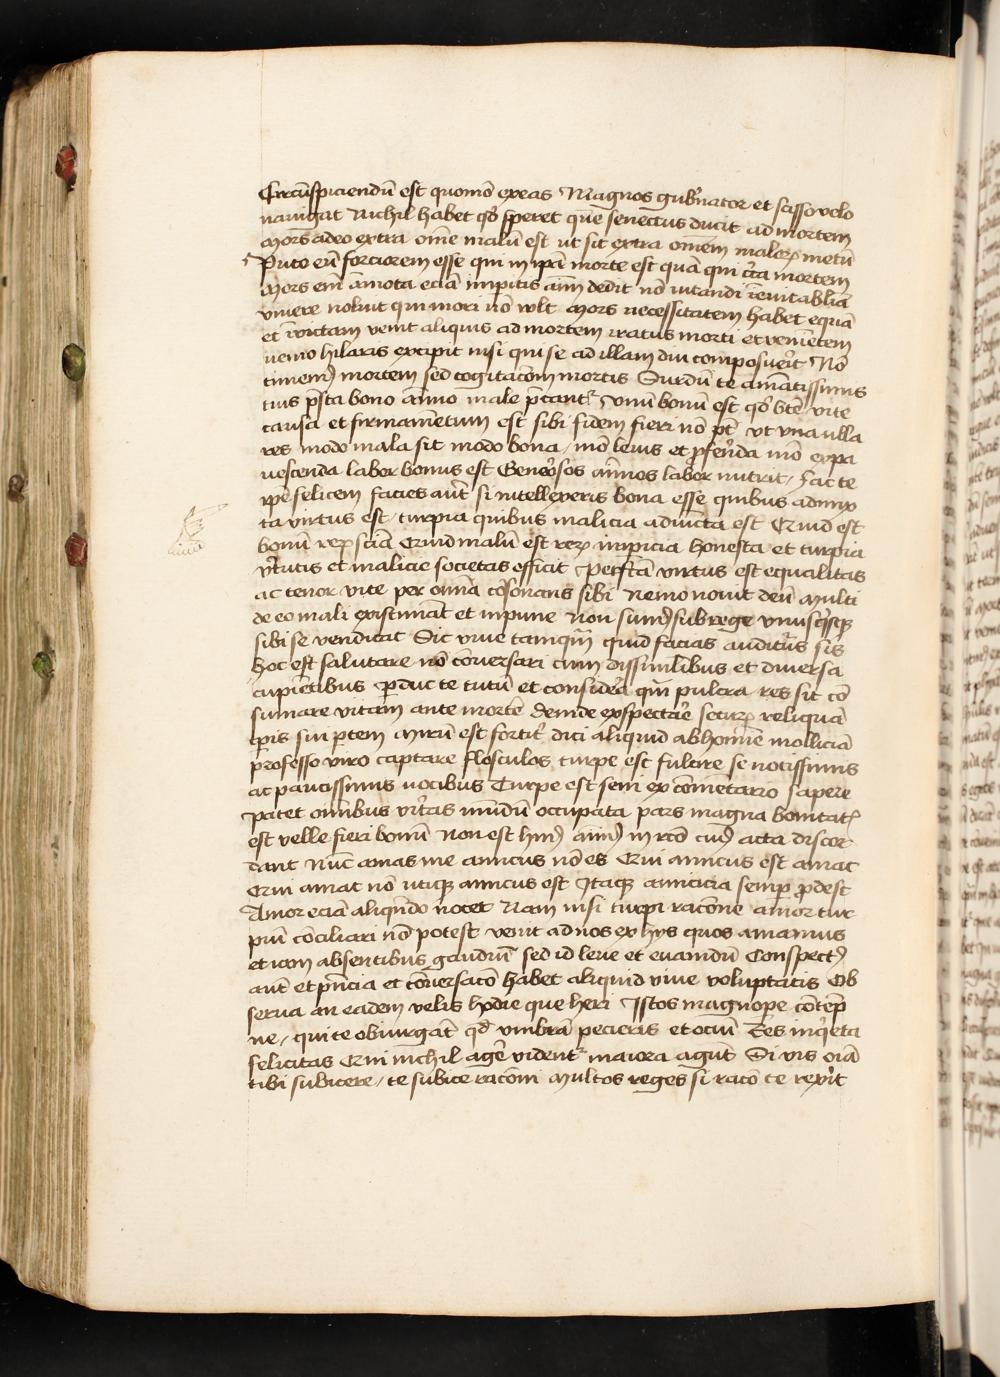 Circūspiciendū est quomō exeas Magnos gub'nator et scisso velo
nauigat Nichil habet qd' speret que senectus ducit ad mortem
Mors adeo extra om̄e malū est ut sit extra omem malor̄ metū
Puto em̄ forciorem esse qui in ip̄a morte est quā qui c̄ca mortem
Mors em̄ āmota eciā imp̄itis aīm dedit nō vitandi īeuitabilia
viuere noluit qui mori nō vlt Mors necessitatem habet equā
et īuictam venit aliquis ad mortem iratus morti et veniētem
nemo hilaris excipit nisi qui se ad illam diu composuer̄it Nō
timem9 mortem sed cogitacōm mortis Surdū te amātissimis
tuis p̄sta bono āimo male p̄cant' Vnū bonū est qd' b̄te vite
causa et firmamētum est sibi fidem fieri nō pt̄ vt vna vlla
res modo mala sit modo bona / mō leuis et p̄fer̄da mō expa
uescenda labor bonus est Gener̄osos āimos labor nutrit / Fac te
ip̄e felicem facies aūt si intellexeris bona esse quibus admix
ta virtus est / turpia quibus malicia adiūcta est Quid est
bonū rer̄ sciā Quid malū est rer̄ imp̄icia honesta et turpia
v̄tutis et malicie societas efficit Perfctā virtus est equalitas
ac tenor vite per om̄ia cōsonans sibi Nemo nouit deū Multi
de eo mali existimāt et inpune Non sum9 sub rege vnusq̄sq
sibi se vendicat Sic viue tamq̄m quid facias auditur̄us sis
hoc est salutare nō cōuersari cum dissimilibus et diuersa
cupiētibus p̄duc te tutū et consider̄a qm̄ pulcra res sit cō
sumare vitam ante mortē deinde exspectar̄e secur̄ reliquā
tp̄is sui p̄tem Mirū est fortit' dici aliquid ab homīe molliciā
professo viro captare flosculos turpe est fulcire se notissimis
ac paucissimis vocibus Turpe est seni ex cōmētario sapere
patet om̄ibus v̄itas nōdū occupata pars magna bonitat'
est velle fieri bonū Non est hui9 aīm9 in rc̄o cui9 acta discor
dant Nūc amas me amicus nō es Qui amicus est amat
Qui amat nō vtiq amicus est Itaq amicicia semp̄ p̄dest
Amor eciā aliqn̄do nocet Nam nisi turpi racōne amor tur
piū cōciliari nō potest venit ad nos ex hijs quos amamus
et iam absentibus gaudiū sed id leue et euanidū Conspect9
aūt et p̄ncia et cōuersacō habet aliquid viue voluptatis Ob
serua an eadem velis hodie que heri Istos magnope cōtēp
ne / qui te obiurgāt qd' vmbrā pecieris et ociū Res inq̄eta
felicitas Qui nichil ager̄e vident' maiora agūt Si vis om̄ia
tibi subicere / te subice racōni Multos reges si racō te rexit